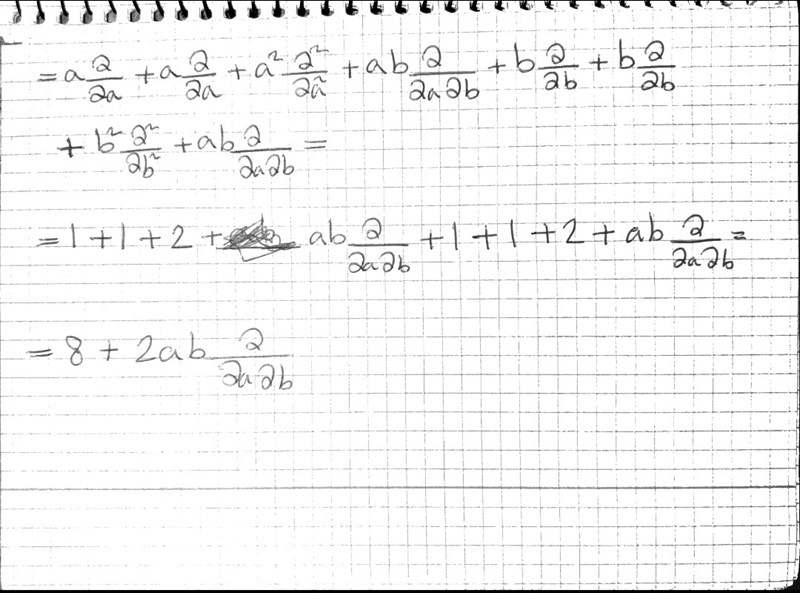 = a ∂/∂a + a ∂/∂a + a² ∂²/∂a² + ab ∂/∂a∂b + b ∂/∂b + b ∂/∂b
+ b² ∂²/∂b² + ab ∂/∂a∂b =
= 1 + 1 + 2 + ab ∂/∂a∂b + 1 + 1 + 2 + ab ∂/∂a∂b =
= 8 + 2ab ∂/∂a∂b